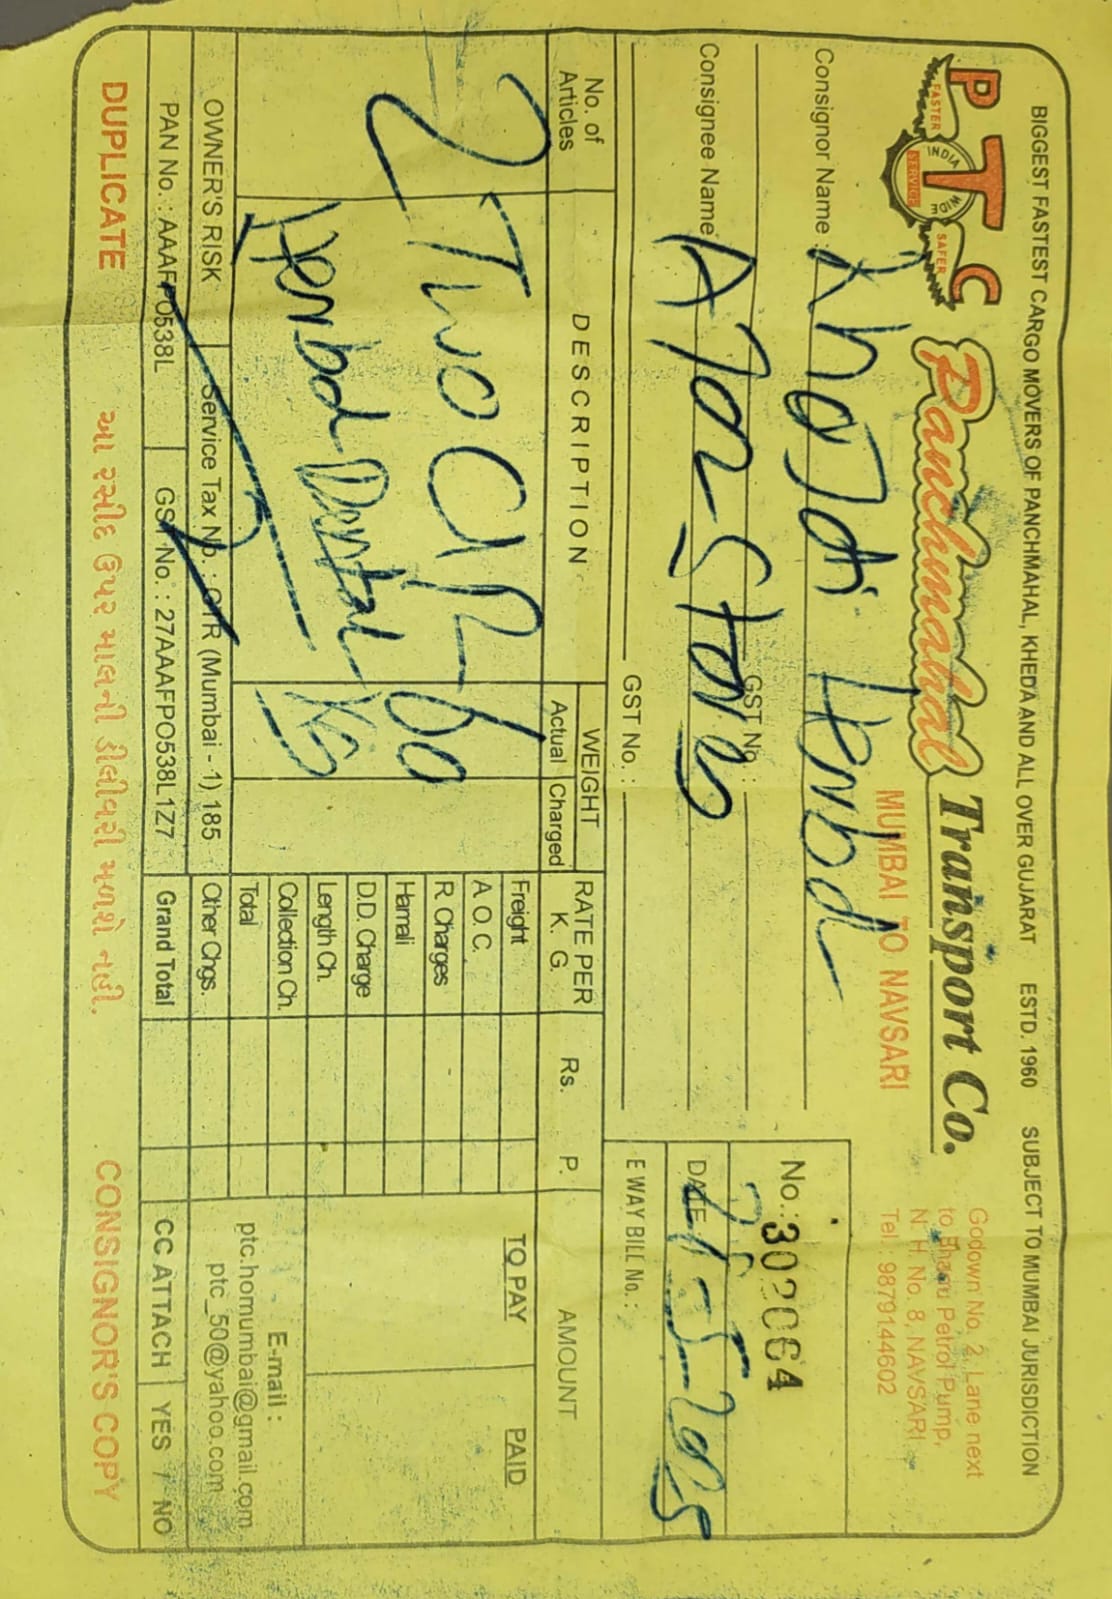 BIGGEST FASTEST CARGO MOVERS OF PANCHMAHAL, KHEDA AND ALL OVER GUJARAT ESTD. 1960 SUBJECT TO MUMBAI JURISDICTION
PTC
FASTER INDIA WIDE SERVICE SAFER
Panchmahal Transport Co.
MUMBAI TO NAVSARI
Godown No. 2, Lane next
to Petrol Pump,
N. H. No. 8, NAVSARI
Tel.: 9879144602
Consignor Name :
GST No. :
Consignee Name : Stores
GST No. :
No.: 302064
DATE
E WAY BILL No. :
No. of Articles
DESCRIPTION
WEIGHT
Actual Charged
RATE PER K. G.
Rs. P.
AMOUNT
TO PAY PAID
2 Two
Herbal Dental
60
Kg
Freight
A.O.C.
R. Charges
Hamali
D.D. Charge
Length Ch.
Collection Ch.
Total
Other Chgs.
Grand Total
E-mail :
ptc.homumbai@gmail.com
ptc_50@yahoo.com
OWNER'S RISK Service Tax No. : GTR (Mumbai - 1) 185
PAN No. : AAAFPO538L GST No. : 27AAAFPO538L1Z7
CC ATTACH YES / NO
DUPLICATE આ રસીદ ઉપર માલની ડીલીવરી મળશે નહી. CONSIGNOR'S COPY